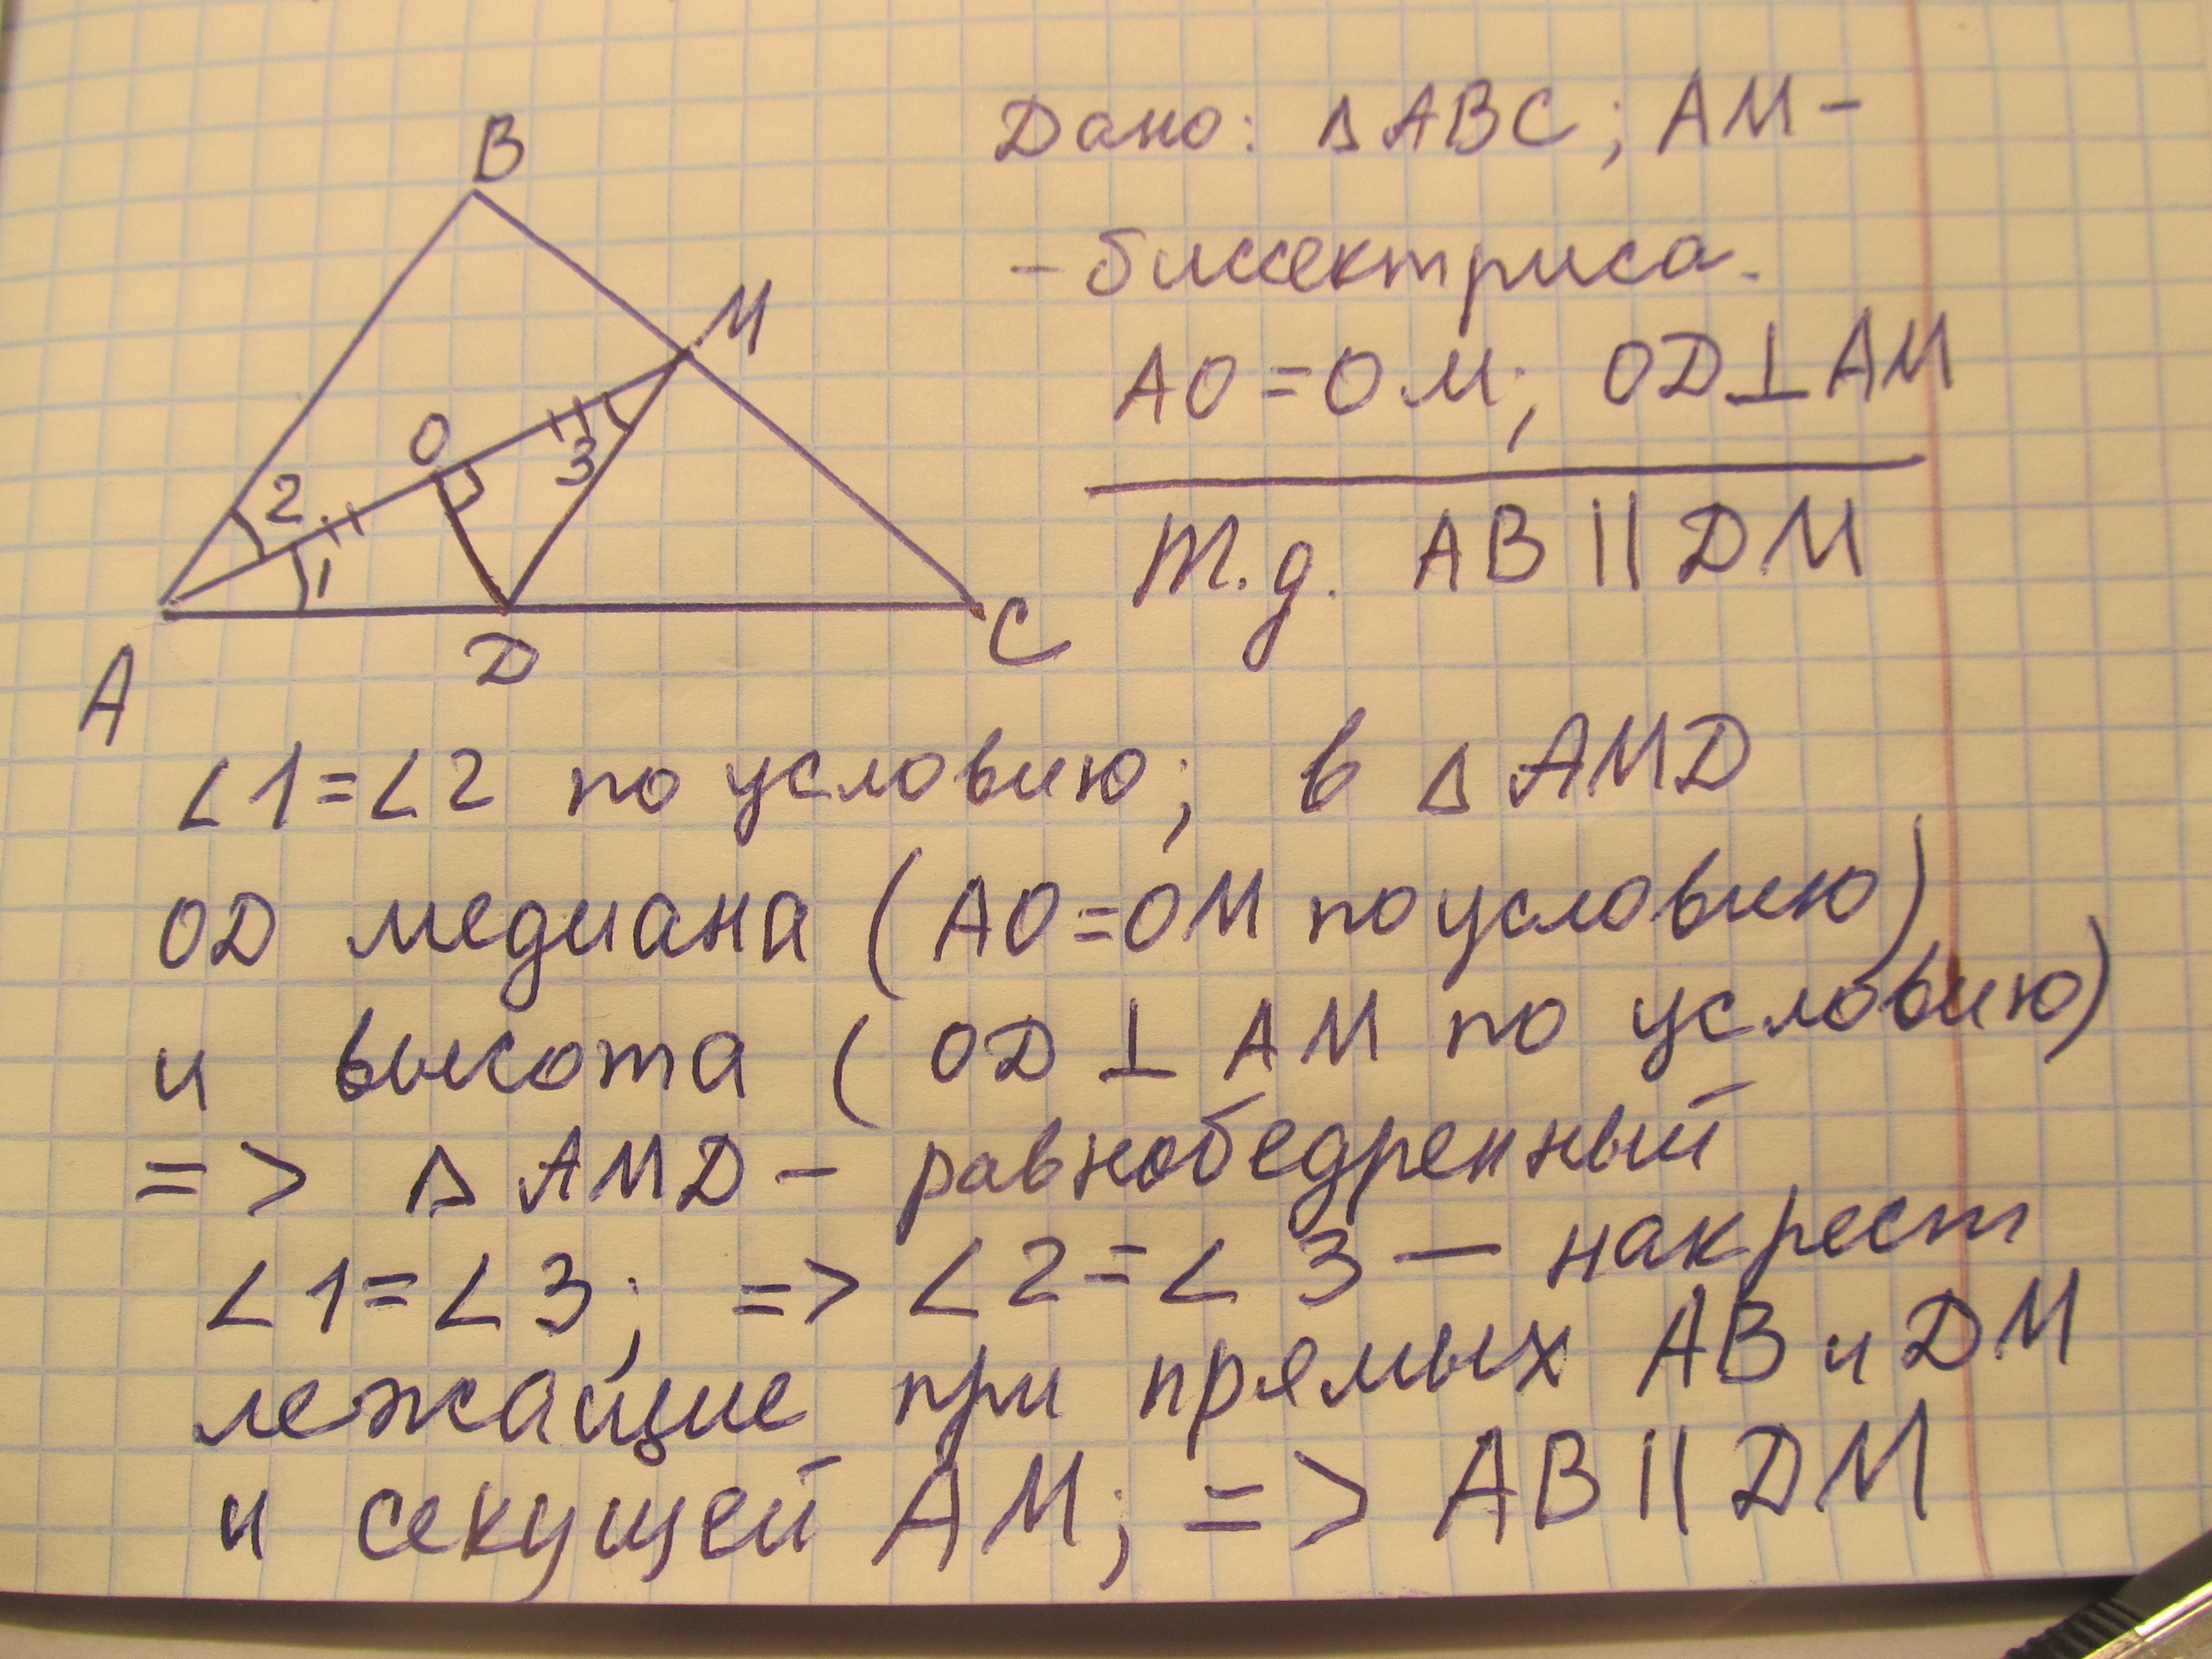 B
M
O
2
3
1
A
D
C
Дано: ΔABC; AM -
- биссектриса.
AO = OM; OD⊥AM
Т.д. AB || DM
∠1=∠2 по условию; в ΔAMD
OD медиана (AO=OM по условию)
и высота (OD ⊥ AM по условию)
=> ΔAMD - равнобедренный
∠1=∠3; => ∠2=∠3 — накрест
лежащие при прямых AB и DM
и секущей AM; => AB || DM